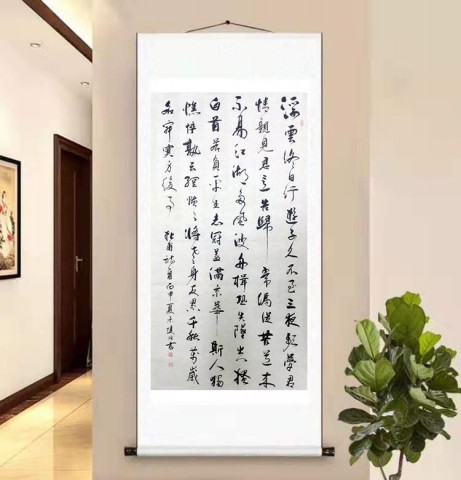 浮雲終日行遊子久不至三夜頻夢君
情親見君意告歸常局促苦道來
不易江湖多風波舟楫恐失墜出門搔
白首若負平生志冠蓋滿京華斯人獨
憔悴孰云網恢恢將老身反累千秋萬歲
名寂寞身後事
杜甫詩丙申夏書